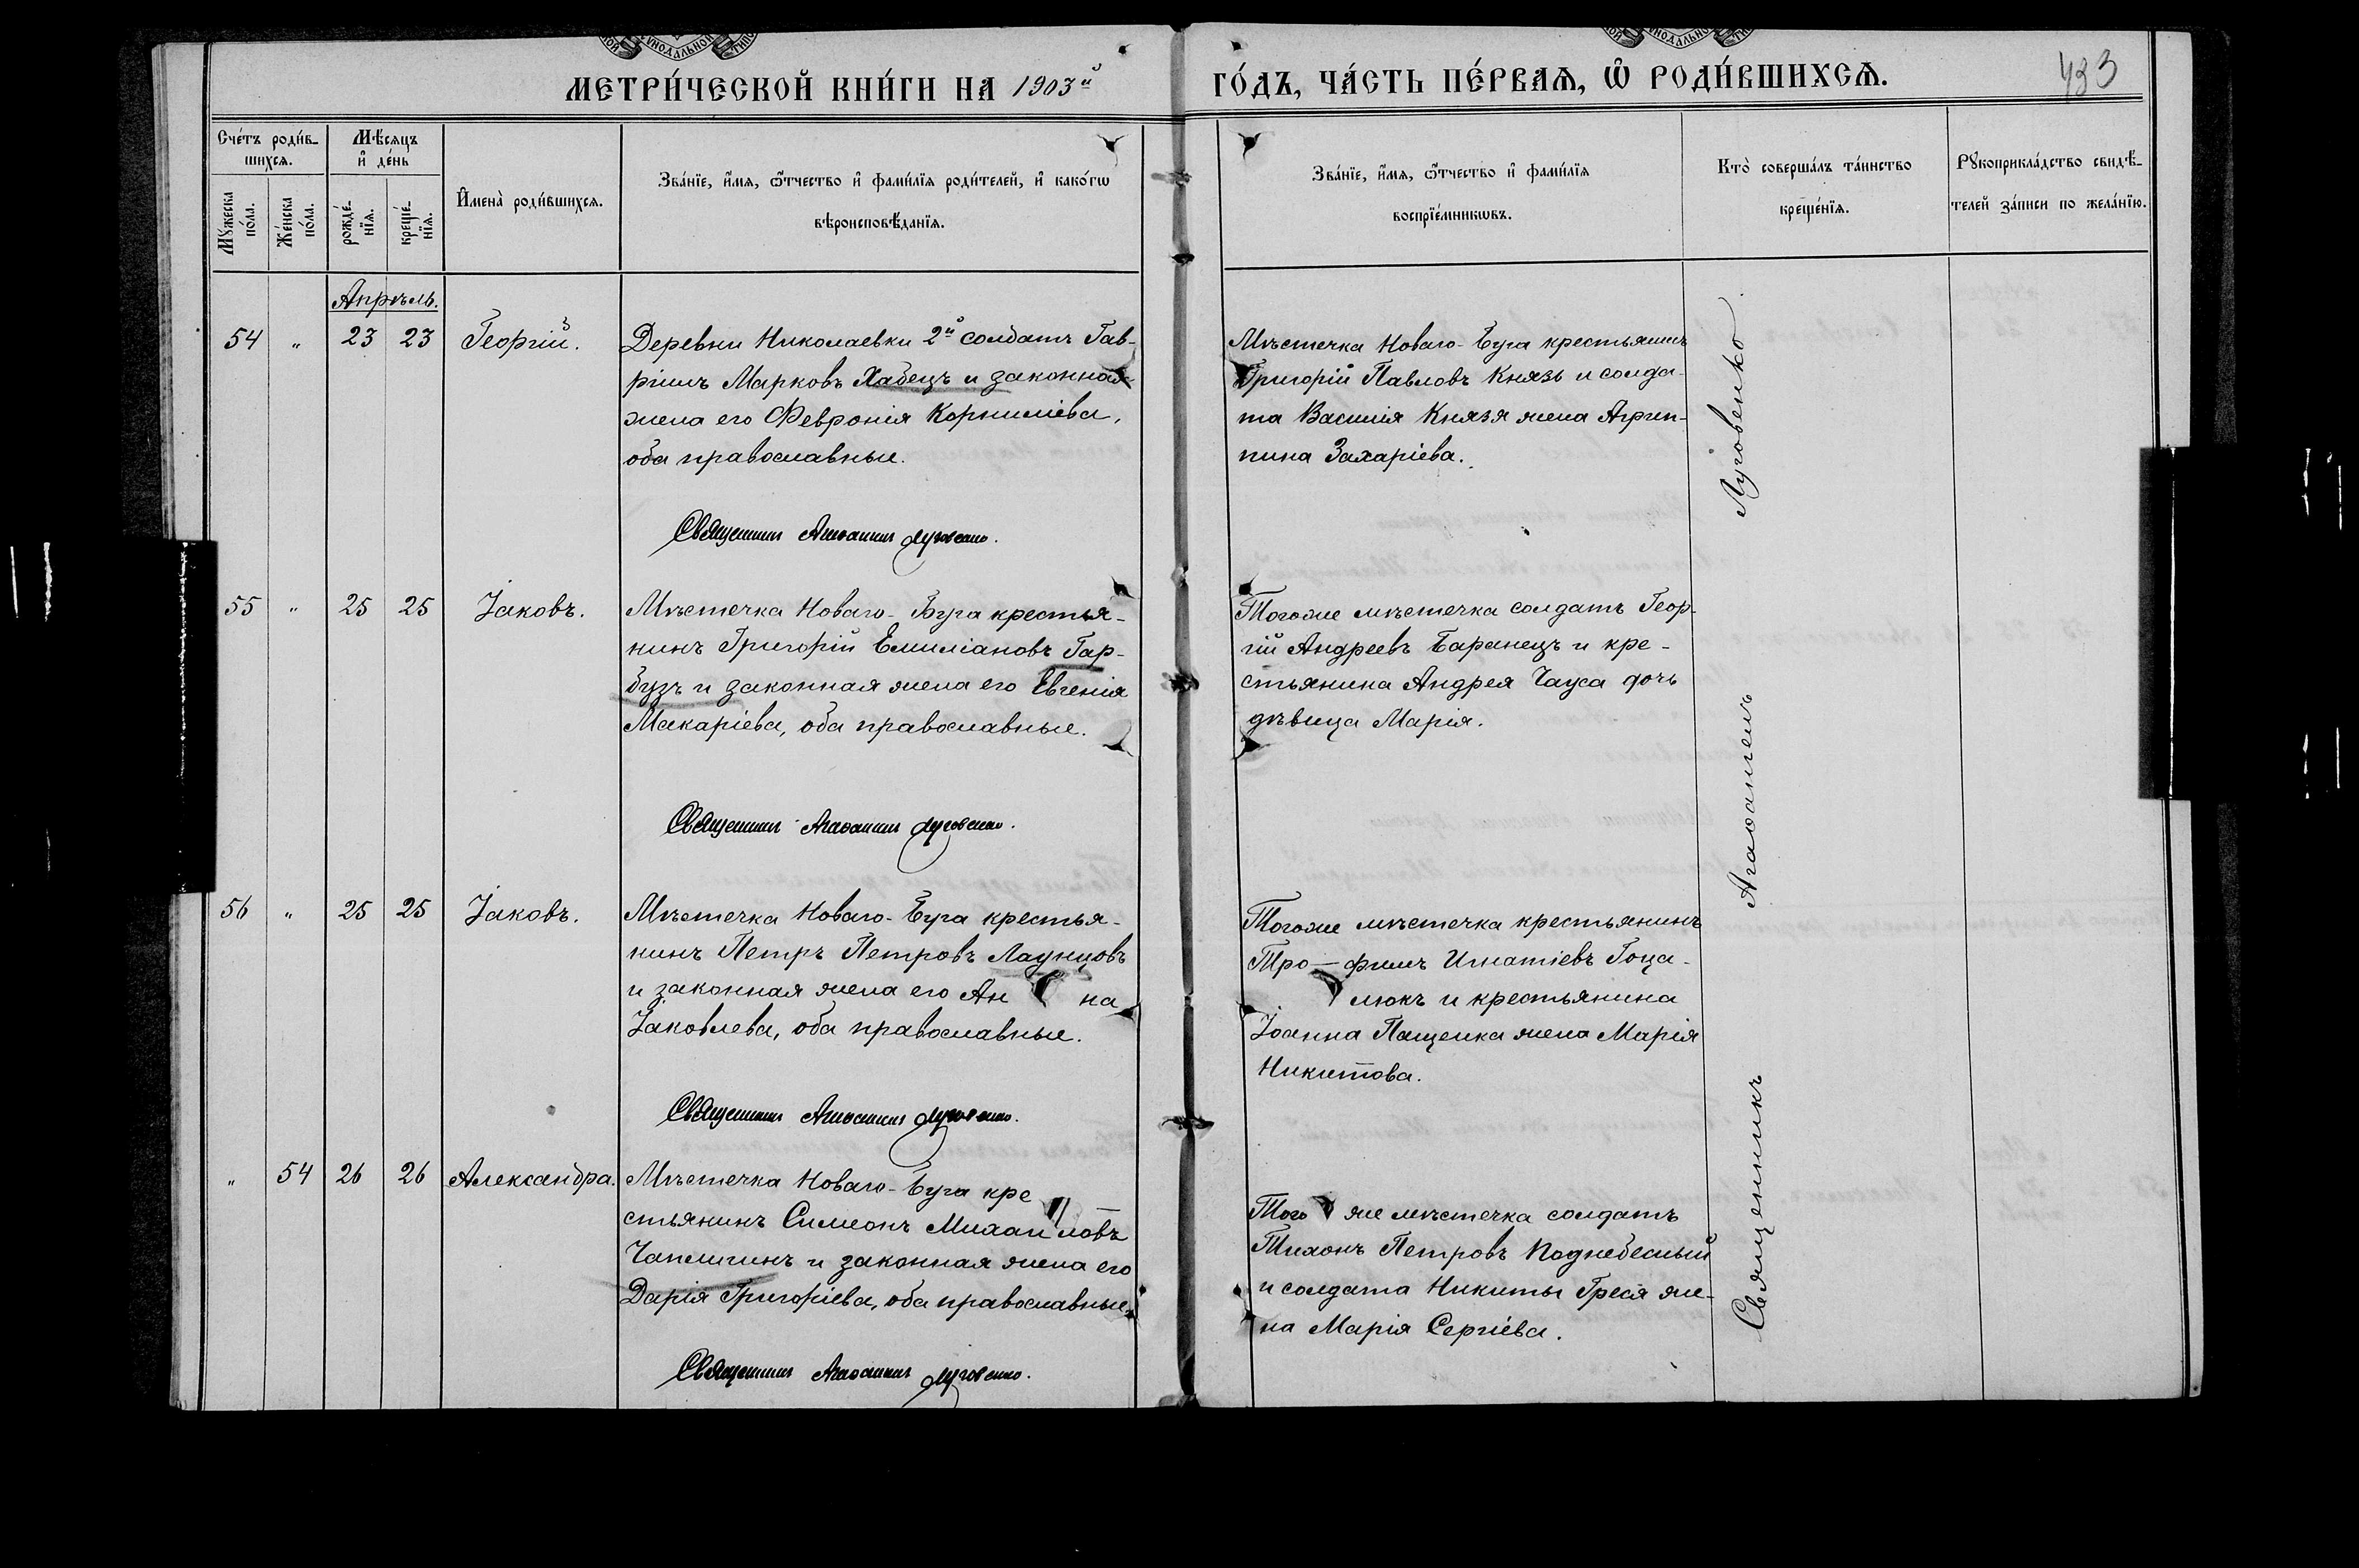 МЕТРИ́ЧЕСКОЙ КНИ́ГИ НА 1903й
ГО́ДЪ, ЧА́СТЬ ПЕ́РВАѦ, Ѿ РОДИ́ВШИХСѦ.
433
Сче́тъ роди́в-
шихсѧ.
Мѣсѧцъ
и҆ де́нь
Мꙋ́жеска
по́ла.
Же́нска
по́ла.
рожде́-
нїѧ.
креще́-
нїѧ.
И҆мена̀ роди́вшихсѧ.
Зва́нїе, и҆́мѧ, ѻ҆́тчество и҆ фами́лїѧ роди́телей, и҆ како́гѡ
вѣроисповѣ́данїѧ.
Зва́нїе, и҆́мѧ, ѻ҆́тчество и҆ фами́лїѧ
воспрїе́мникѡвъ.
Кто̀ соверша́лъ та́инство
креще́нїѧ.
Рꙋкоприкла́дство свидѣ́-
телей за́писи по жела́нїю.
Апрѣль.
54 " 23 23 Георгій.
Деревни Николаевки 2й солдатъ Гав-
ріилъ Марковъ Хабецъ и законная
жена его Февронія Корниліева,
оба православные.
Священникъ Агаѳангелъ Луговенко.
Мѣстечка Новаго-Буга крестьянинъ
Григорій Павловъ Князь и солда-
та Василія Князя жена Агрип-
пина Захаріева.
55 " 25 25 Іаковъ.
Мѣстечка Новаго-Буга крестья-
нинъ Григорій Емиліановъ Гар-
бузъ и законная жена его Евгенія
Макаріева, оба православные.
Священникъ Агаѳангелъ Луговенко.
Тогоже мѣстечка солдатъ Геор-
гій Андреевъ Баранецъ и кре-
стьянина Андрея Чауса дочь
дѣвица Марія.
56 " 25 25 Іаковъ.
Мѣстечка Новаго-Буга крестья-
нинъ Петръ Петровъ Лаунцовъ
и законная жена его Ан на
Іаковлева, оба православные.
Священникъ Агаѳангелъ Луговенко.
Тогоже мѣстечка крестьянинъ
Тро-фимъ Игнатіевъ Гоца-
люкъ и крестьянина
Іоанна Пащенка жена Марія
Никитова.
" 54 26 26 Александра.
Мѣстечка Новаго-Буга кре
стьянинъ Симеонъ Михаиловъ
Чаплигинъ и законная жена его
Дарія Григоріева, оба православные.
Священникъ Агаѳангелъ Луговенко.
Того же мѣстечка солдатъ
Тихонъ Петровъ Поднебесный
и солдата Никиты Греся же-
на Марія Сергіева.
Священникъ Агаѳангелъ Луговенко.